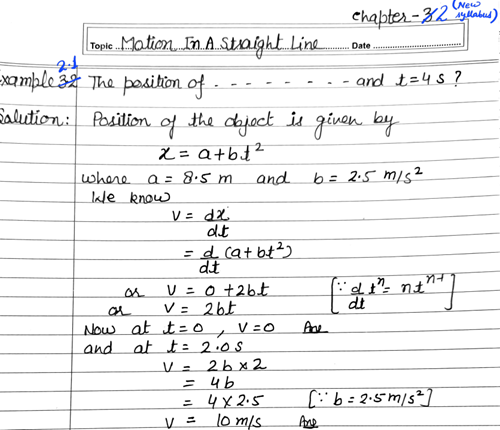 chapter-3/2 (New syllabus)
Topic Motion In A Straight Line Date
2.1
xample 3.2 The position of - - - - - - - - - and t = 4 s ?
Solution: Position of the object is given by
x = a + bt²
where a = 8.5 m and b = 2.5 m/s²
We know
v = dx/dt
= d/dt (a + bt²)
or v = 0 + 2bt [∵ d/dt tⁿ = n tⁿ⁻¹]
or v = 2bt
Now at t = 0 , v = 0 Ans
and at t = 2.0 s
v = 2b × 2
= 4b
= 4 × 2.5 [∵ b = 2.5 m/s²]
v = 10 m/s Ans